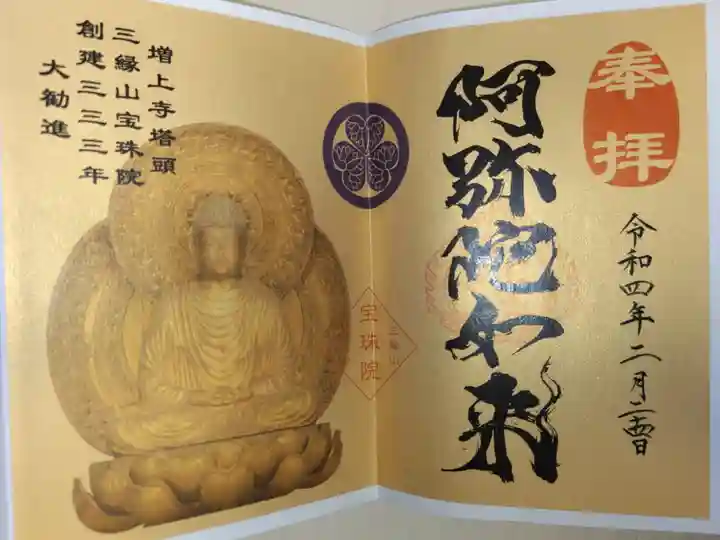 奉拝
阿弥陀如来
令和四年二月二十四日
増上寺塔頭
三縁山宝珠院
創建三三三年
大勧進
三縁山
宝珠院